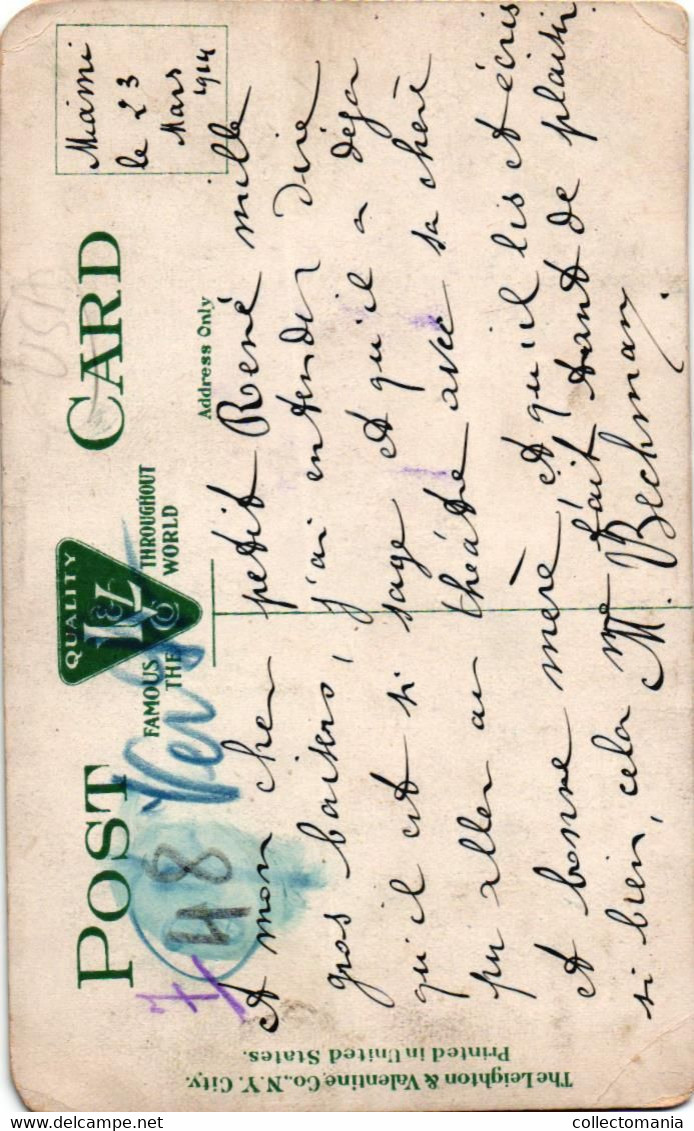 POST CARD
QUALITY
L&V
Co
FAMOUS THROUGHOUT
THE WORLD
Address Only
USA
48
Miami
le 23
Mars
1914
A mon cher petit René mille
gros baisers, j'ai entendu dire
qu'il est si sage et qu'il a déja
pu aller au theâtre avec sa chère
et bonne mère et qu'il lis et écris
si bien, cela me fait tant de plaisir.
M. Bechman
The Leighton & Valentine Co., N.Y. City.
Printed in United States.
collectomania